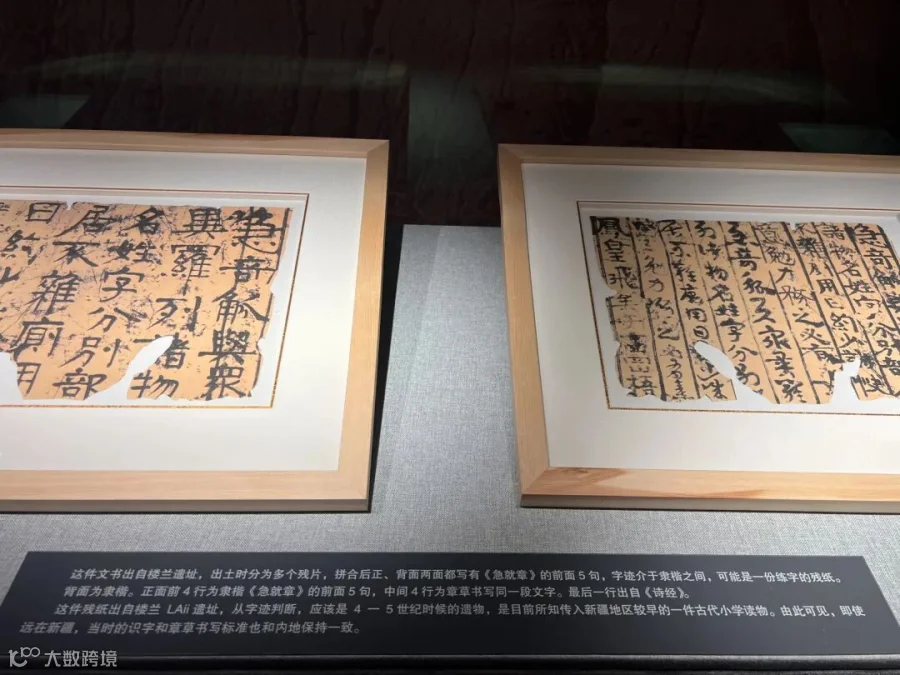 急奇觚與眾
異羅列諸物
名姓字分別部
居不雜廁用
日約少
急奇觚
諸物名姓字分別部
雜廁用日約少
勉力務之必有
急奇觚與眾異羅列
諸物名姓字分別
居不雜廁用日約少
勉力務之必有
鳳皇飛 梧
这件文书出自楼兰遗址,出土时分为多个残片,拼合后正、背面两面都写有《急就章》的前面5句,字迹介于隶楷之间,可能是一份练字的残纸。
背面为隶楷。正面前4行为隶楷《急就章》的前面5句,中间4行章草书写同一段文字。最后一行出自《诗经》。
这件残纸出自楼兰 LAii 遗址,从字迹判断,应该是 4 — 5世纪时候的遗物,是目前所知传入新疆地区较早的一件古代小学读物。由此可见,即使
远在新疆,当时的识字和章草书写标准也和内地保持一致。
大数跨境